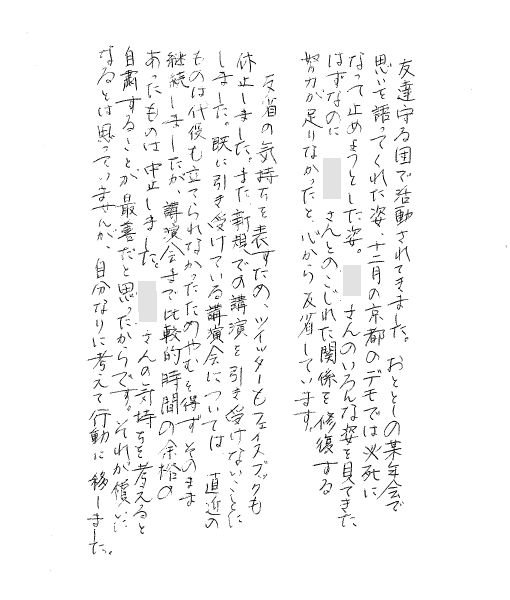 友達守る団で活動されてきました。おととしの某年会で
思いを語ってくれた姿、十二月の京都のデモでは必死に
なって止めようとした姿。 さんのいろんな姿を見てきた
はずなのに さんとのこじれた関係を修復する
努力が足りなかったと心から反省しています。
反省の気持ちを表すため、ツイッターもフェイスブックも
休止しました。また新規での講演を引き受けないことに
しました。既に引き受けている講演会については 直近の
ものは代役も立てられなかったためやむを得ずそのまま
継続しましたが、講演会まで比較的時間の余裕の
あったものは中止しました。 さんの気持ちを考えると
自粛することが最善だと思ったからです。それが償いに
なるとは思っていませんが、自分なりに考えて行動に移しました。